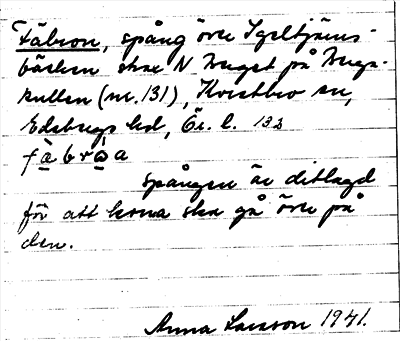 Fäbron, spång över Igeltjärns-
bäcken strax N torpet på Berga-
kullen (nr. 131), Kvistbro sn,
Edsbergs hd, Ör. l. 133
fäbròa
Spången är ditlagd
för att korna ska gå över på
den.
Anna Larsson 1941.